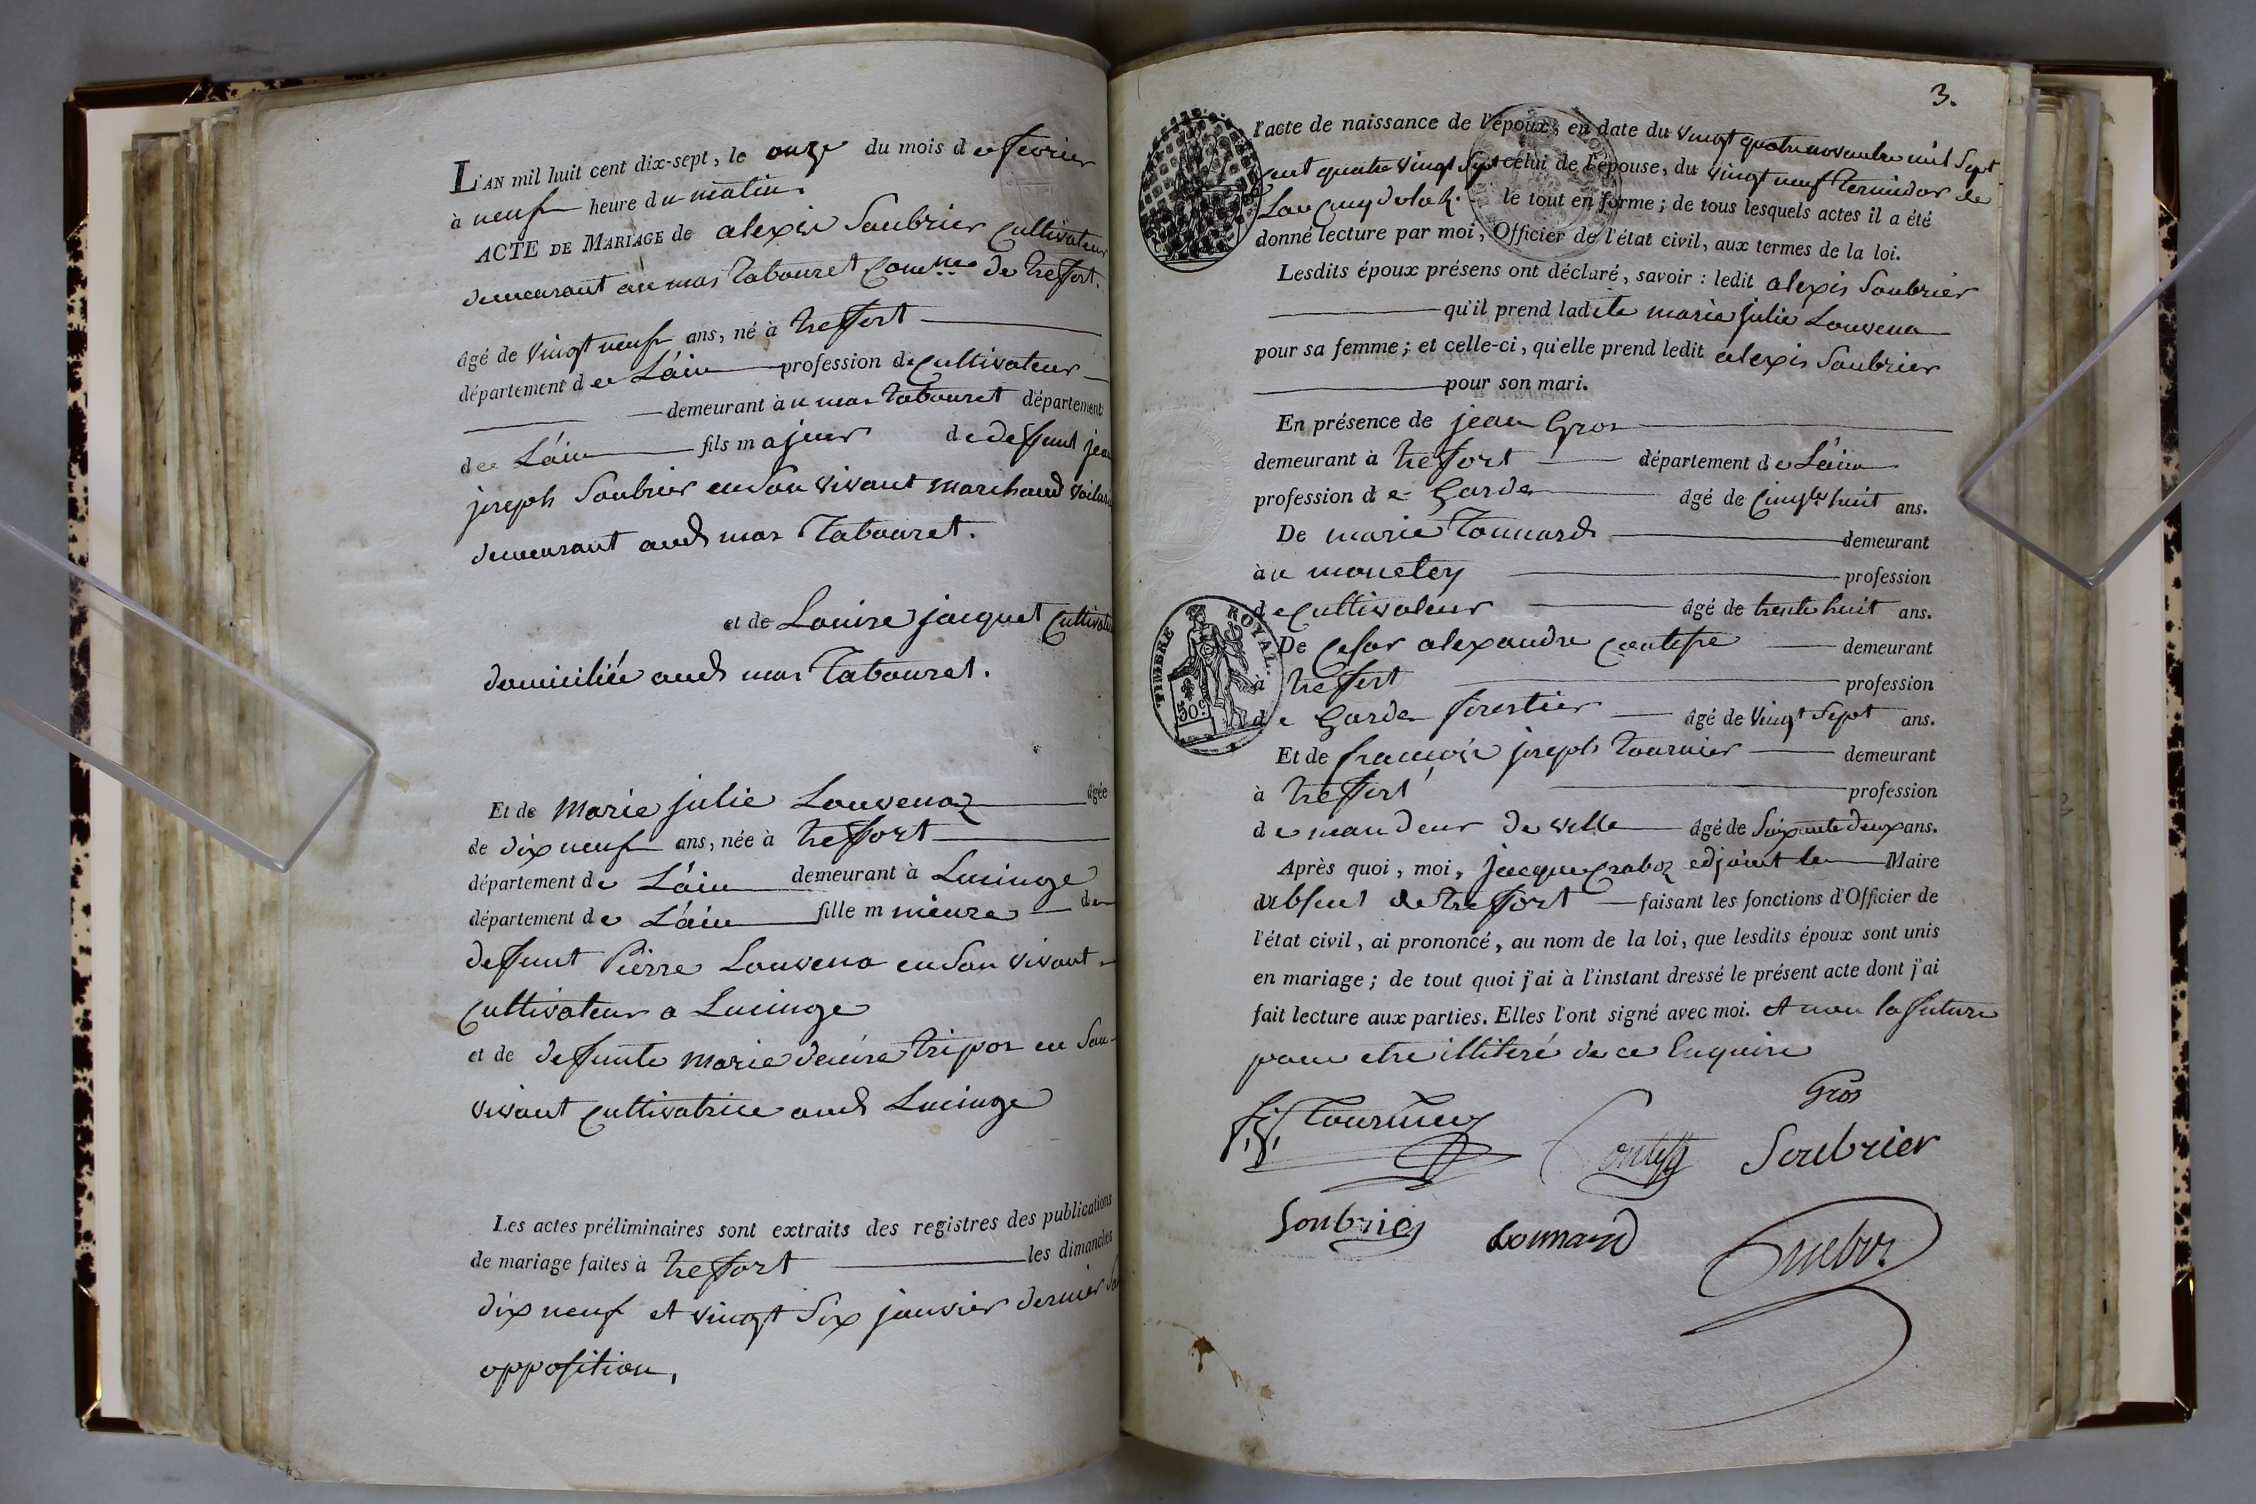 L'AN mil huit cent dix-sept, le onze du mois de fevrier
à neuf heure du matin.
ACTE DE MARIAGE de alexis Soubrier Cultivateur
demeurant au mas Tabouret Comne de treffort.
âgé de vingt neuf ans, né à treffort
département de L'ain profession de Cultivateur
demeurant au mas tabouret département
de L'ain fils majeur de deffunt jean
joseph Soubrier en Son vivant marchand
demeurant aud mas Tabouret.
et de Louise jacquet Cultivatrice
domiciliée aud mas Tabouret.
Et de Marie julie Louvenaz âgée
de dix neuf ans, née à treffort
département de L'ain demeurant à Lucinge
département de L'ain fille mineure de
deffunt Pierre Louvena en Son vivant
Cultivateur a Lucinge
et de deffunte Marie denise tripoz en Son
vivant Cultivatrice aud Lucinge
Les actes préliminaires sont extraits des registres des publications
de mariage faites à treffort les dimanches
dix neuf et vingt Six janvier dernier
opposition,
3.
l'acte de naissance de l'époux, en date du vingt quatre novembre mil Sept
cent quatre vingt Sept celui de l'épouse, du vingt neuf termidor de
Lan cinq le tout en forme ; de tous lesquels actes il a été
donné lecture par moi, Officier de l'état civil, aux termes de la loi.
Lesdits époux présens ont déclaré, savoir : ledit alexis Soubrier
qu'il prend ladite marie julie Louvena
pour sa femme ; et celle-ci, qu'elle prend ledit alexis Soubrier
pour son mari.
En présence de jean Gros
demeurant à treffort département de L'ain
profession de Garde âgé de Cinqte huit ans.
De marie Tonnard demeurant
au monetey profession
de Cultivateur âgé de trente huit ans.
De Cesar alexandre demeurant
à treffort profession
de Garde forestier âgé de vingt Sept ans.
Et de francois joseph Tournier demeurant
à treffort profession
de mandeur de ville âgé de Soixante deux ans.
Après quoi, moi, jacque adjoint le Maire
absent de treffort faisant les fonctions d'Officier de
l'état civil, ai prononcé, au nom de la loi, que lesdits époux sont unis
en mariage ; de tout quoi j'ai à l'instant dressé le présent acte dont j'ai
fait lecture aux parties. Elles l'ont signé avec moi. et non la future
pour etre illiteré de ce Enquise
Gros
f. j. Tournier
Soubrier
Soubrier
tonnard
TIMBRE ROYAL.
50c